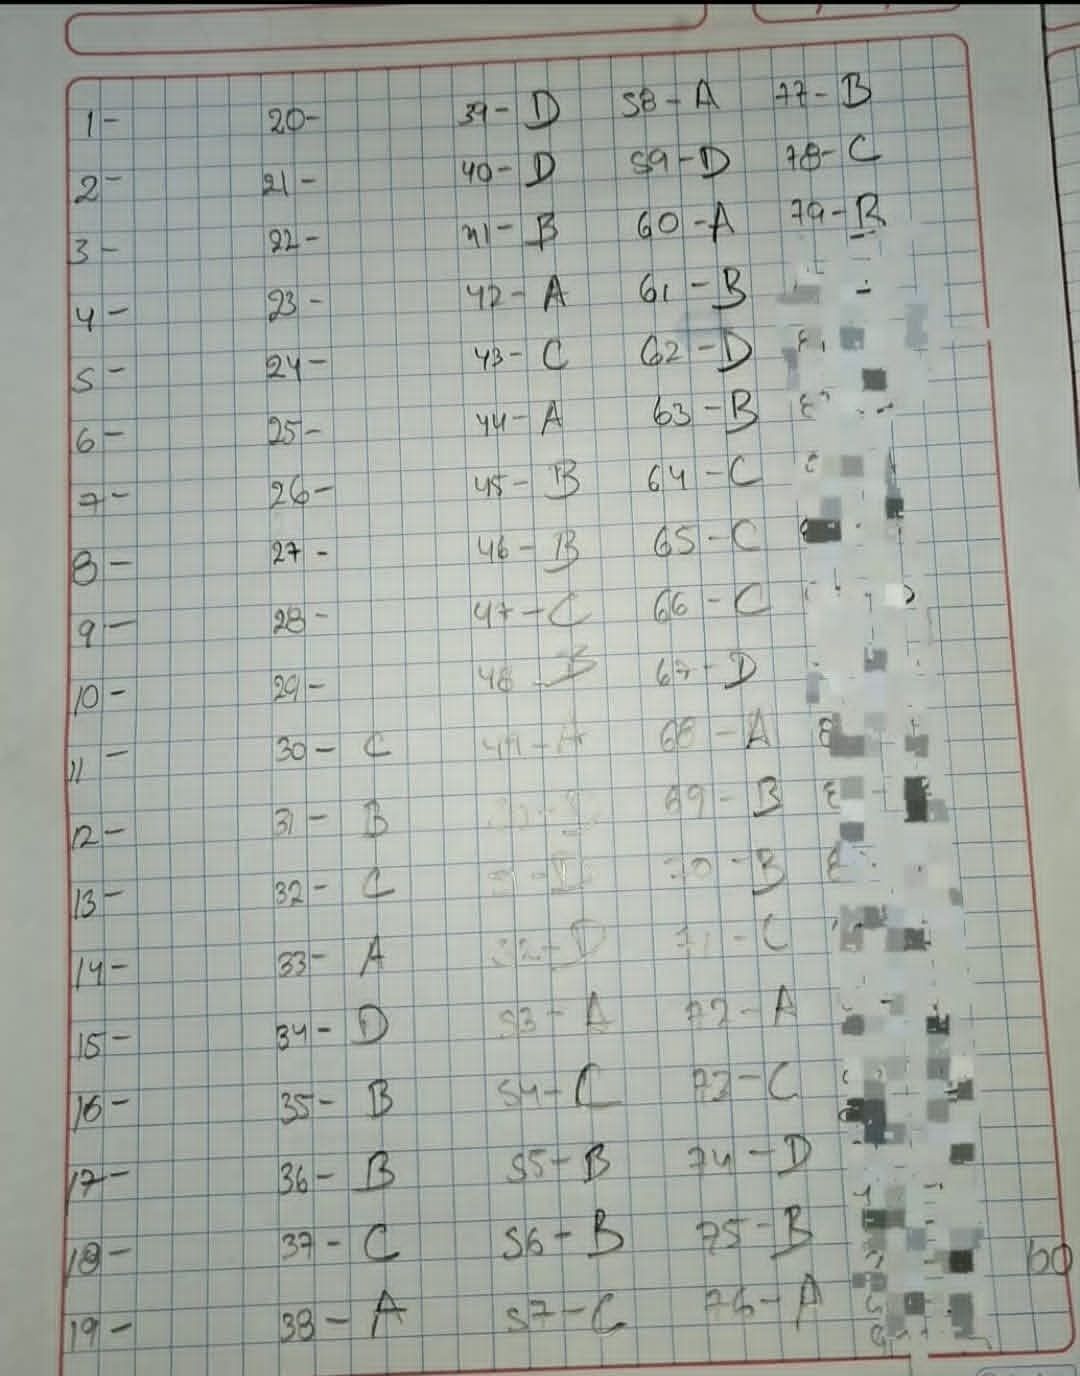 1-
2-
3-
4-
5-
6-
7-
8-
9-
10-
11-
12-
13-
14-
15-
16-
17-
18-
19-
20-
21-
22-
23-
24-
25-
26-
27-
28-
29-
30- C
31- B
32- C
33- A
34- D
35- B
36- B
37- C
38- A
39- D
40- D
41- B
42- A
43- C
44- A
45- B
46- B
47- C
48 - B
49- A
51- D
52- D
53- A
54- C
55- B
56- B
57- C
58- A
59- D
60- A
61- B
62- D
63- B
64- C
65- C
66- C
67- D
68- A
69- B
70- B
71- C
72- A
73- C
74- D
75- B
76- A
77- B
78- C
79- B
60